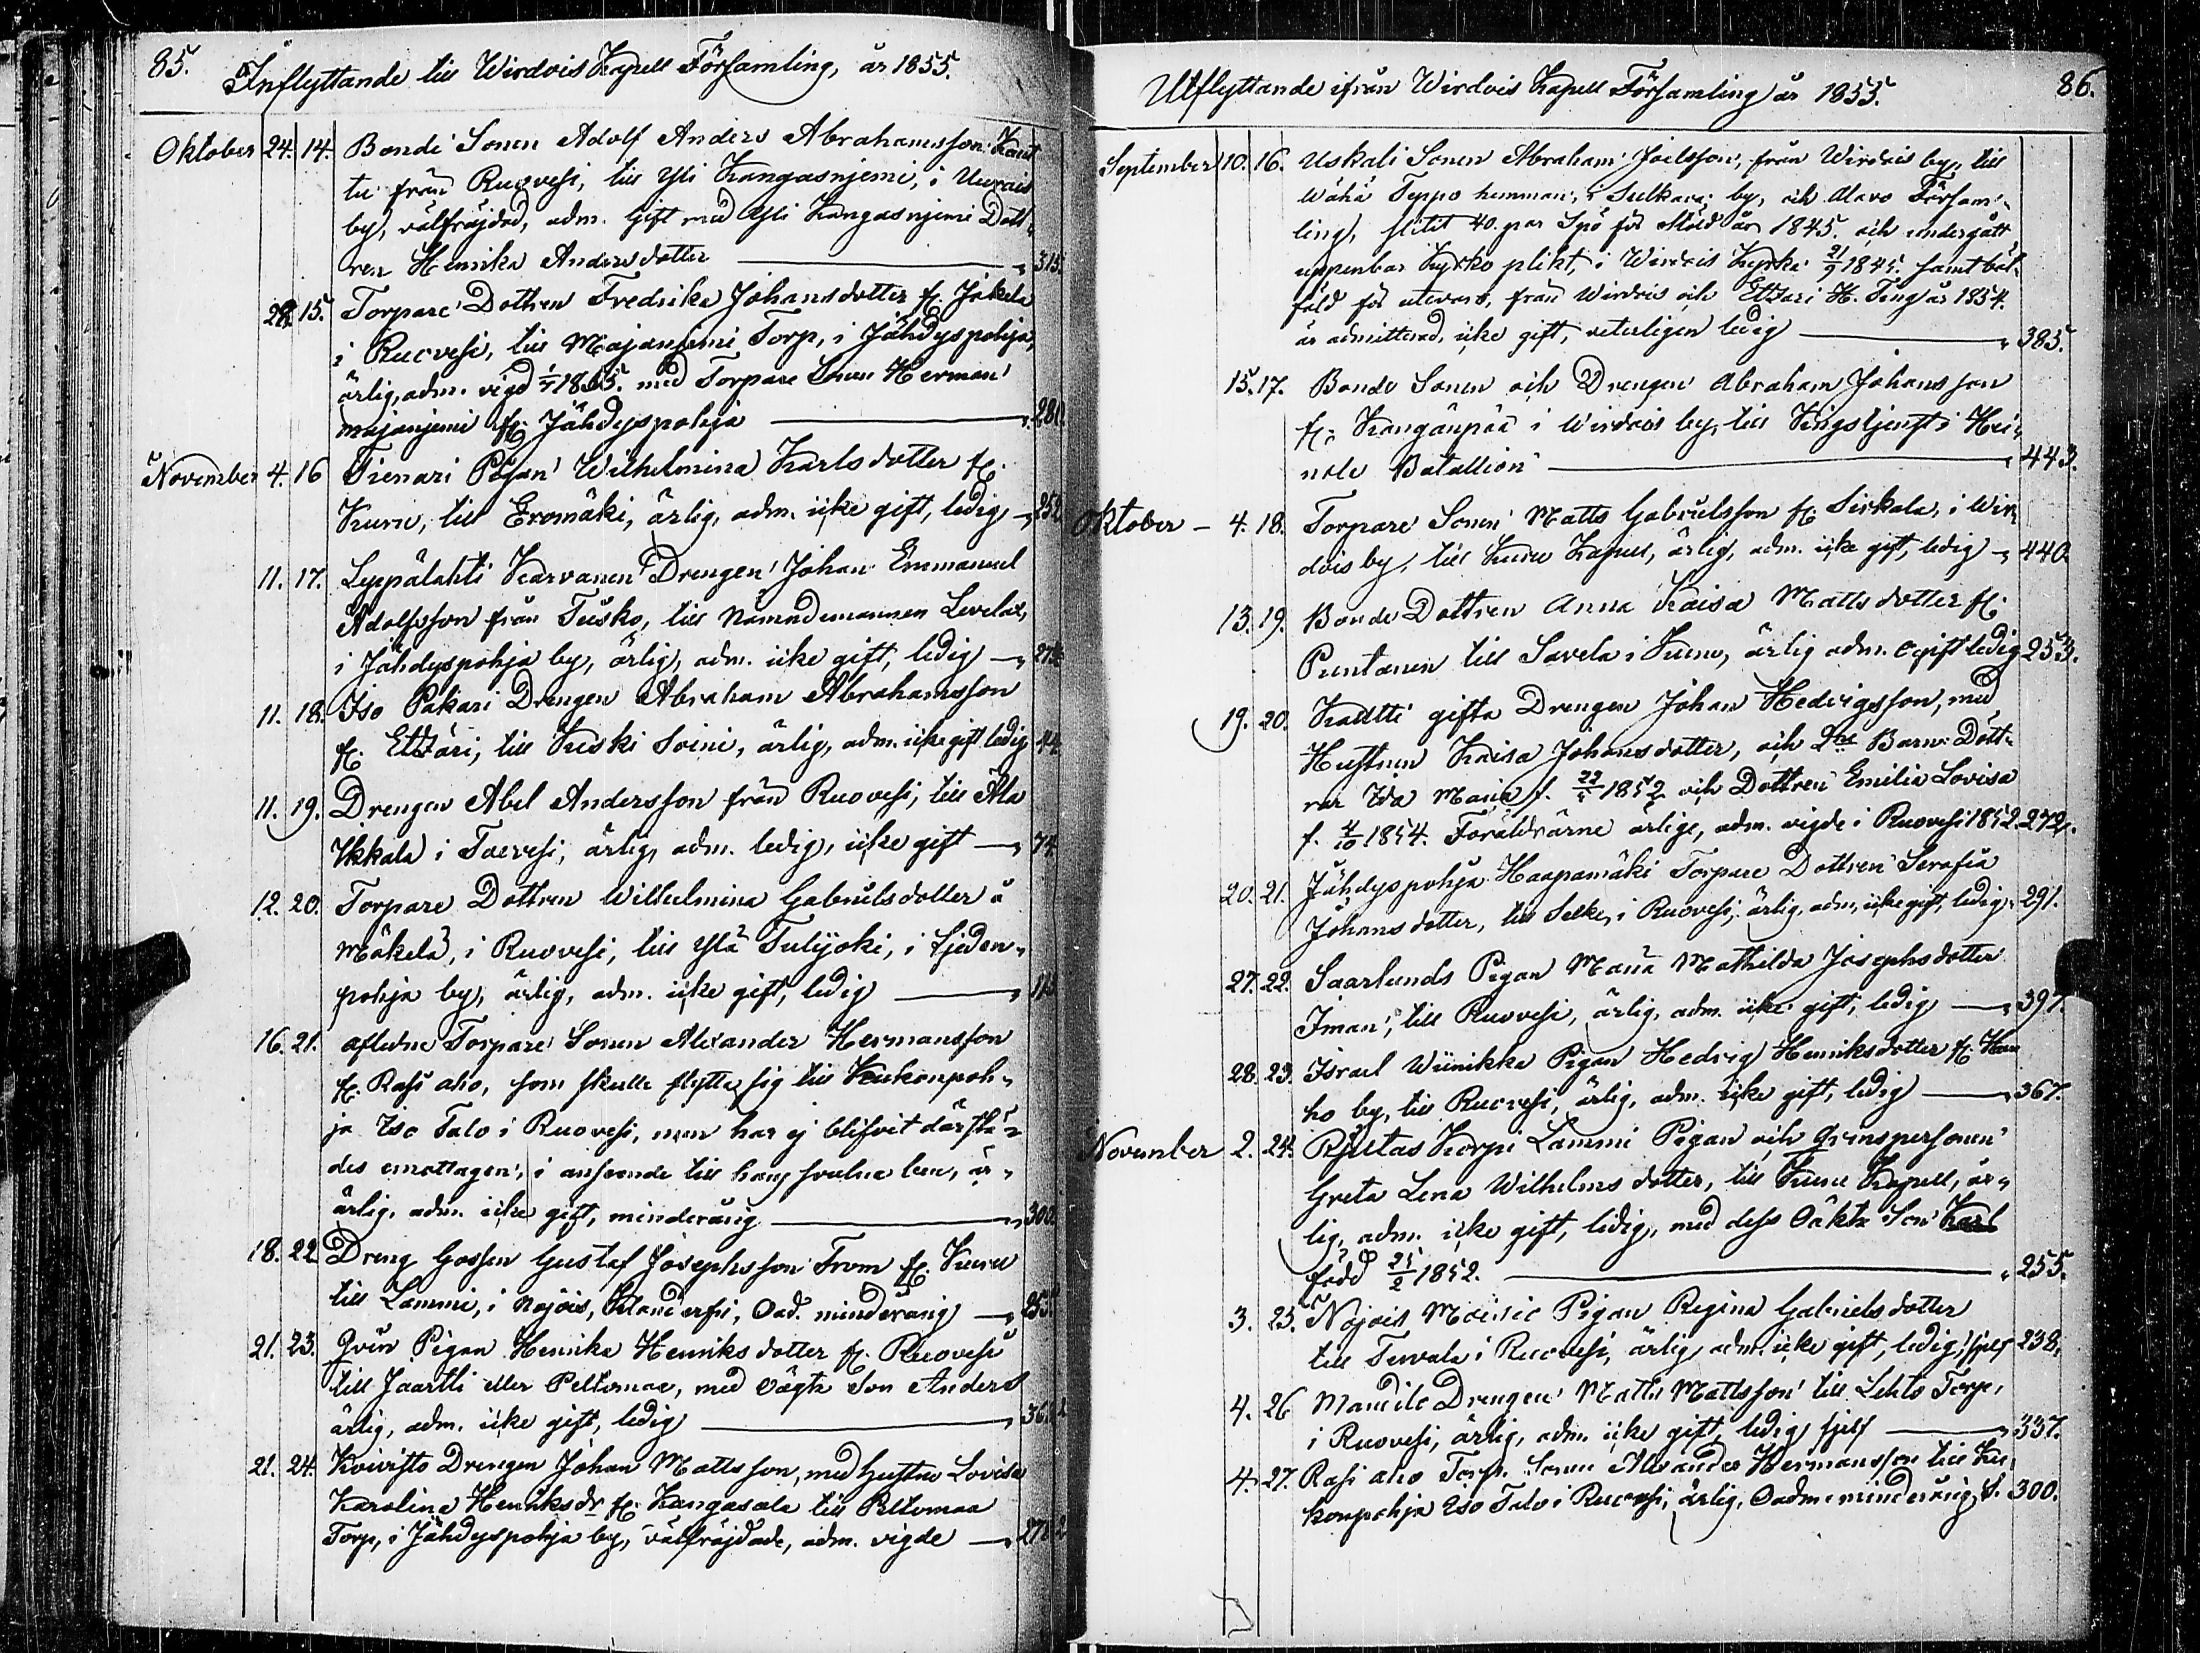 85.
Inflyttande till Wirdois Kapell Församling, år 1855.
Oktober 24. 14. Bonde Sonen Adolf Anders Abrahamsson
tu från Ruovesi, till Yli Kangasnjemi, i Uurais
by, välfräjdad, adm. Gift med Yli Kangasnjemi Dott-
ren Henrika Andersdotter 315.
28. 15. Torpare Dottren Fredrika Johansdotter fr. Jäkelä
i Ruovesi, till Majanjemi Torp, i Jähdyspohja,
ärlig, adm. vigd 1855. med Torpare Sonen Herman
Majanjemi fr. Jähdyspohja 281.
November 4. 16 Pigan Wilhelmina Karlsdotter fr.
Kuru, till Eromäki, ärlig, adm. icke gift, ledig 252
11. 17. Leppälahti Karvanen Drengen Johan Emmanuel
Adolfsson från till Nämndemannen
i Jähdyspohja by, ärlig, adm. icke gift, ledig
11. 18. Iso Pakari Drengen Abraham Abrahamsson
fr. Etzäri, till Keski Soini, ärlig, adm. icke gift ledig 44.
11. 19. Drengen Abel Andersson från Ruovesi, till Ala
Ikkala i ärlig, adm. ledig, icke gift 74.
12. 20. Torpare Dottren Wilhelmina Gabrielsdotter å
Mäkelä, i Ruovesi, till Ylä Tulijoki, i
pohja by, ärlig, adm. icke gift, ledig
16. 21. Aflidne Torpare Sonen Alexander Hermansson
fr. Rasi aho, som skulle flytta sig till Keukonpoh-
ja Iso Talo i Ruovesi, men har ej blifvit därstä-
des emottagen, i anseende till hans ben, är
ärlig, adm. icke gift, minderårig 300
18. 22 Dreng Gossen Gustaf Josephsson From fr. Kuru
till Lammi, i Nojois, Oad. minderårig 255.
21. 23. Pigan Henrika Henriksdotter fr. Ruovesi
till Jaartti eller Peltomaa, med oägta Son Anders
ärlig, adm. icke gift, ledig
21. 24. Koivisto Drengen Johan Mattsson, med hustru Lovisa
Karolina Henriksdr fr. Kangasala till Peltomaa
Torp, i Jähdyspohja by, välfräjdade, adm. vigde
86.
Utflyttande ifrån Wirdois Kapell Församling år 1855.
September 10. 16. Uskali Sonen Abraham Joelsson, från Wirdois by, till
Wähä Teppo hemman, i Sulkava by, och Alavo Försam-
ling, slitit 40. par Spö för Stöld år 1845. och undergått
uppenbar Kyrko plikt, i Wirdois Kyrka 21/9 1845. samt böt-
fäld för från Wirdois och Etzäri H. Ting år 1854.
är admitterad, icke gift, veterligen ledig 385.
15. 17. Bonde Sonen och Drengen Abraham Johansson
fr. Kangänpää i Wirdois by, till Krigstjenst i Hei-
nola Batallion 443.
Oktober 4. 18. Torpare Sonen Matts Gabrielsson fr. Sirkala, i Wir-
dois by, till Kuru Kapell, ärlig, adm. icke gift, ledig 440
13. 19. Bonde Dottren Anna Kaisa Mattsdotter fr.
Puntanen till Savela i Kuru, ärlig adm. ogift ledig 253.
19. 20. Kaltti gifta Drengen Johan Hedvigsson, med
Hustrun Kaisa Johansdotter, och 2ne Barn: Dött-
rar Ida Maria f. 1852 och Dottren Emilia Lovisa
f. 1854. Föräldrarne ärlige, adm. vigde i Ruovesi 1852. 272.
20. 21. Jähdyspohja Haapamäki Torpare Dottren Serafia
Johansdotter, till Selkee, i Ruovesi, ärlig, adm, icke gift, ledig 291.
27. 22. Saarlunds Pigan Maria Mathilda Josephsdotter
Iman, till Ruovesi, ärlig, adm. icke gift, ledig 397.
28. 23. Israel Wiinikka Pigan Hedvig Henriksdotter fr.
ho by, till Ruovesi, ärlig, adm. icke gift, ledig 367.
November 2. 24. Korpi Lammi Pigan och Qvinspersonen
Greta Lena Wilhelmsdotter, till Kuru Kapell, är-
lig, adm. icke gift, ledig, med dess Oäkta Son Karl
född 25/2 1852. 255.
3. 25. Nojois Pigan Regina Gabrielsdotter
till Tervala i Ruovesi, ärlig, adm. icke gift, ledig, sjelf 238.
4. 26 Drengen Matts Mattsson till Lehto Torp,
i Ruovesi, ärlig, adm. icke gift, ledig sjelf 337.
4. 27. Rasi aho Torp. Sonen Alexander Hermansson till Keu-
konpohja Iso Talo i Ruovesi, ärlig, Oadm. minderårig, S. 300.